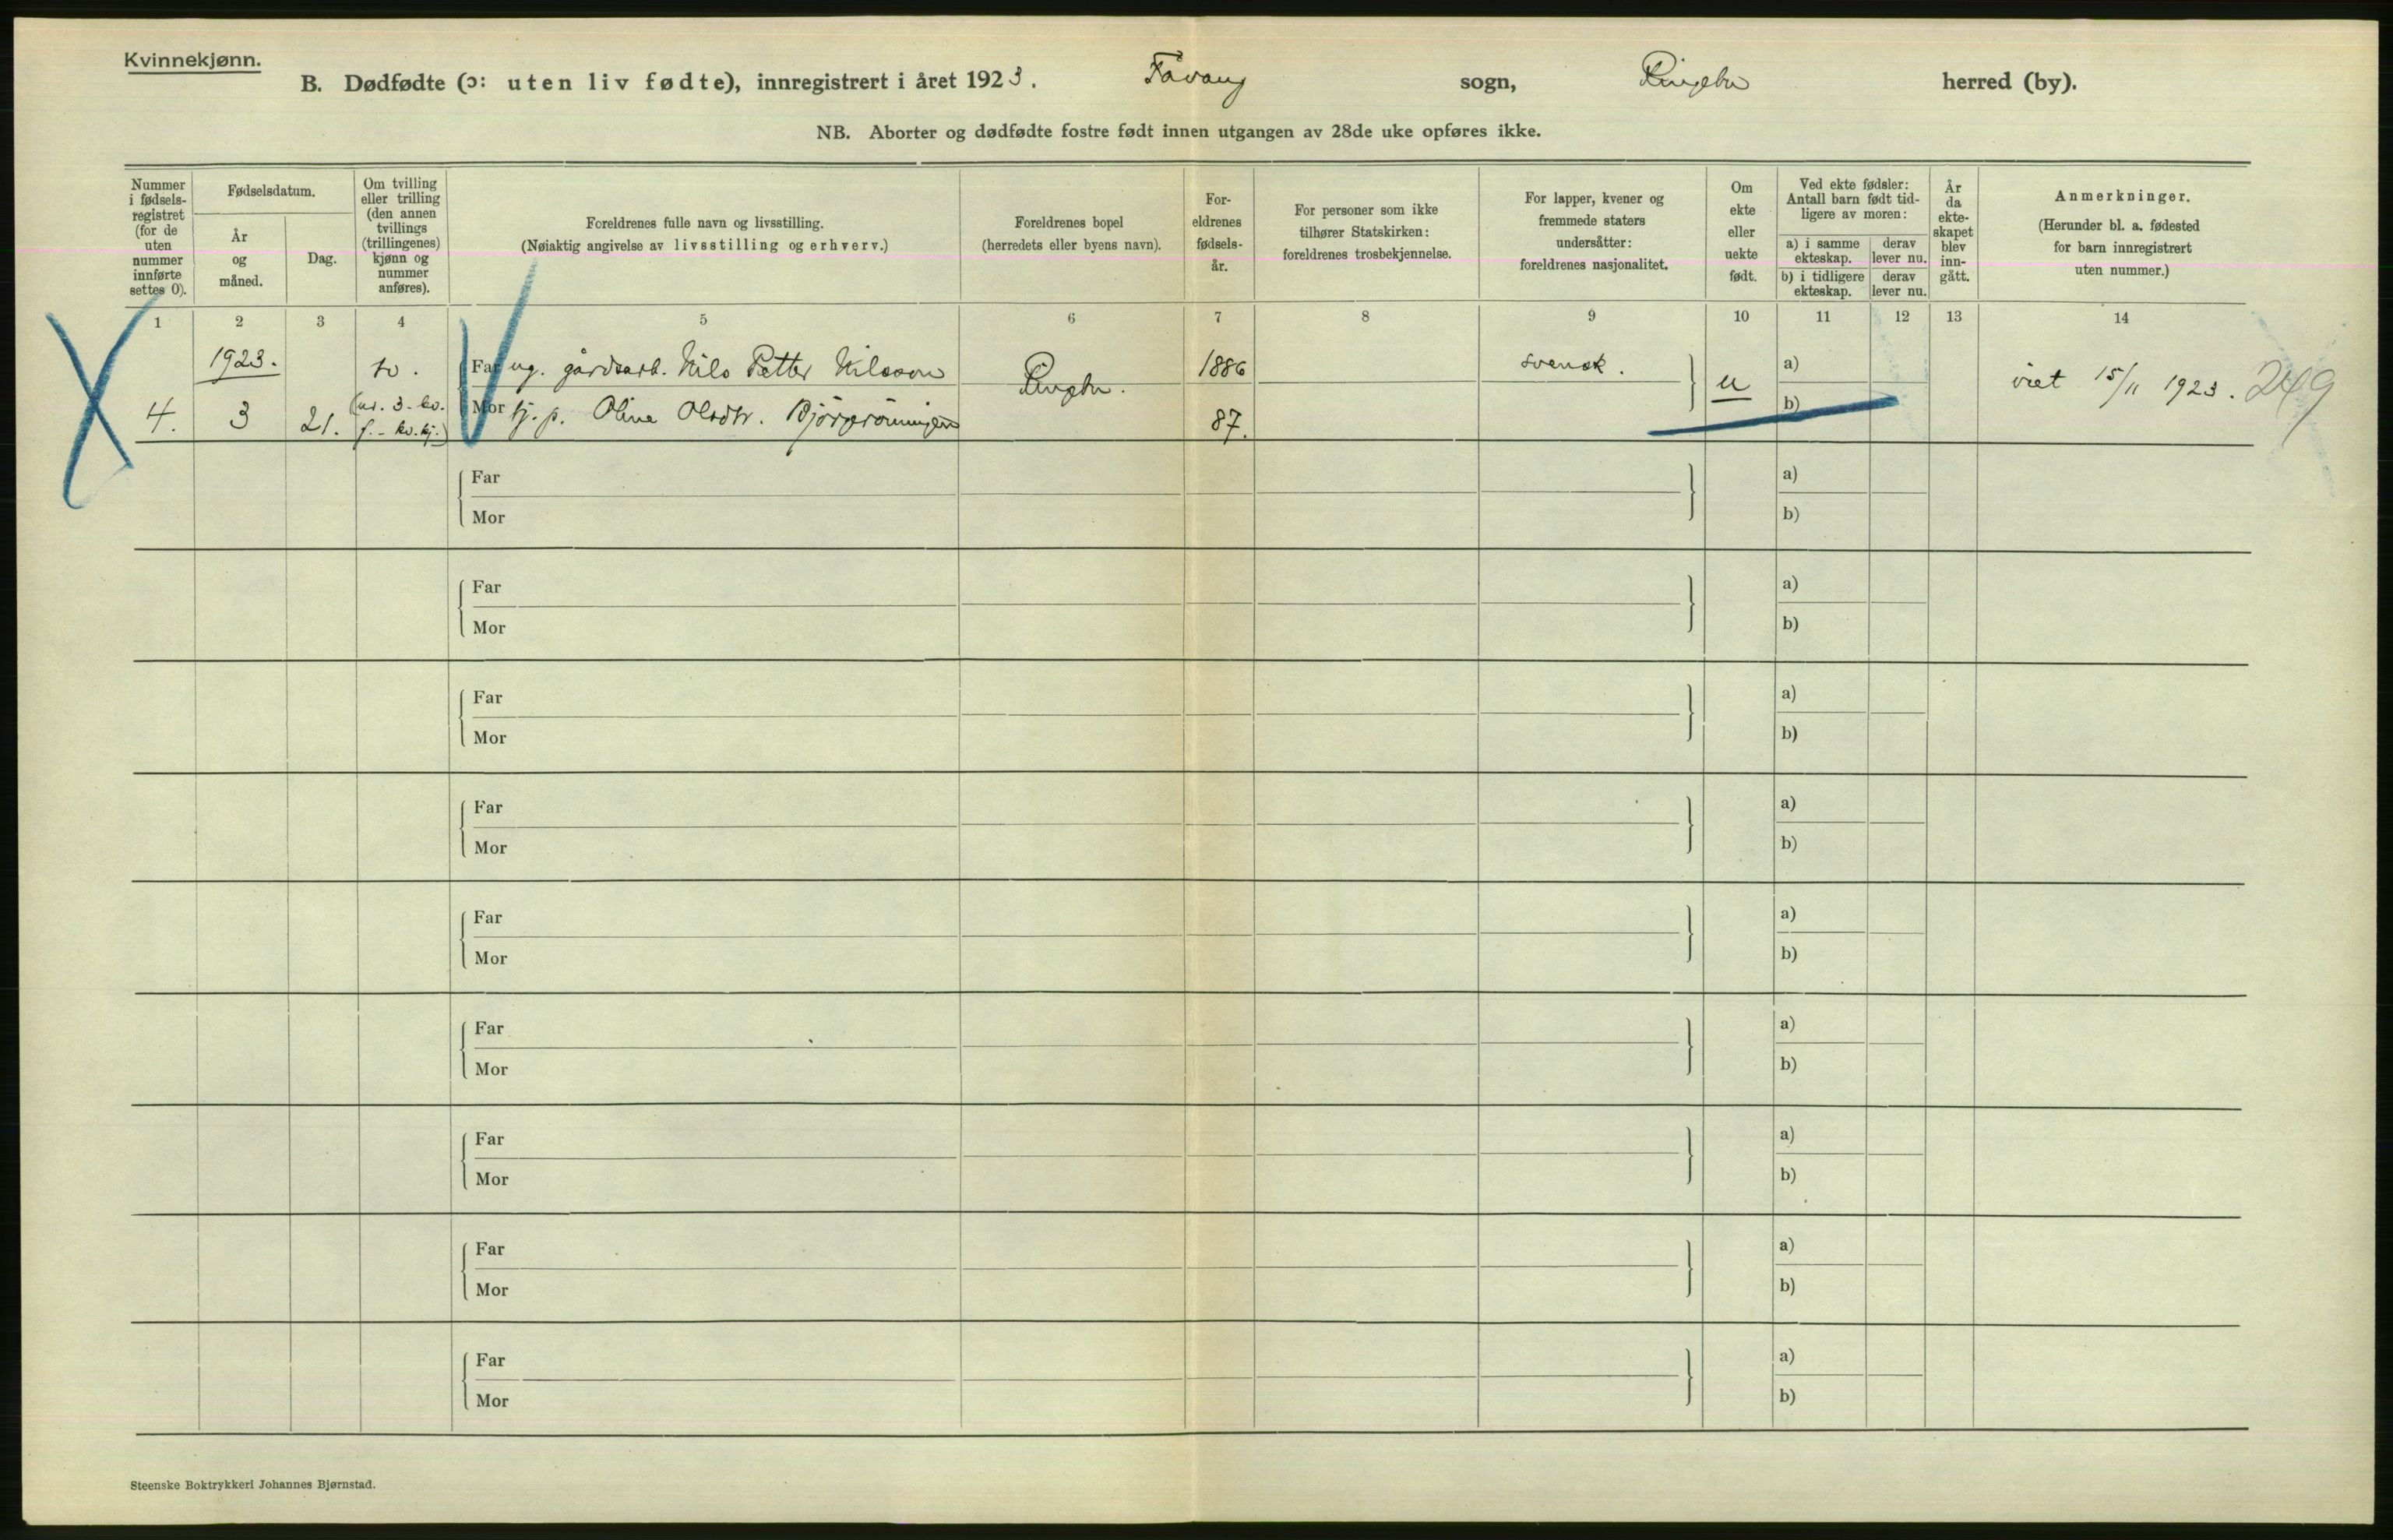 Kvinnekjønn.
B. Dødfødte (ɔ: uten liv fødte), innregistrert i året 1923. Fåvang sogn, Ringebu herred (by).
NB. Aborter og dødfødte fostre født innen utgangen av 28de uke opføres ikke.
Nummer i fødsels-registret (for de uten nummer innførte settes 0).
Fødselsdatum.
År og måned.
Dag.
Om tvilling eller trilling (den annen tvillings (trillingenes) kjønn og nummer anføres).
Foreldrenes fulle navn og livsstilling.
(Nøiaktig angivelse av livsstilling og erhverv.)
Foreldrenes bopel
(herredets eller byens navn).
For-eldrenes fødsels-år.
For personer som ikke tilhører Statskirken: foreldrenes trosbekjennelse.
For lapper, kvener og fremmede staters undersåtter: foreldrenes nasjonalitet.
Om ekte eller uekte født.
Ved ekte fødsler: Antall barn født tid-ligere av moren:
a) i samme ekteskap.
derav lever nu.
b) i tidligere ekteskap.
derav lever nu.
År da ekte-skapet blev inn-gått.
Anmerkninger.
(Herunder bl. a. fødested for barn innregistrert uten nummer.)
1 2 3 4 5 6 7 8 9 10 11 12 13 14
1923. tv. Far ug. gårdsarb. Nils Petter Nilsson Ringebu. 1886 svensk. u a) viet 15/11 1923. 249
4. 3 21. (nr. 3 - lev. f. - kv.kj.) Mor tj. p. Oline Olsdtr. 87. b)
Far a)
Mor b)
Far a)
Mor b)
Far a)
Mor b)
Far a)
Mor b)
Far a)
Mor b)
Far a)
Mor b)
Far a)
Mor b)
Far a)
Mor b)
Far a)
Mor b)
Steenske Boktrykkeri Johannes Bjørnstad.